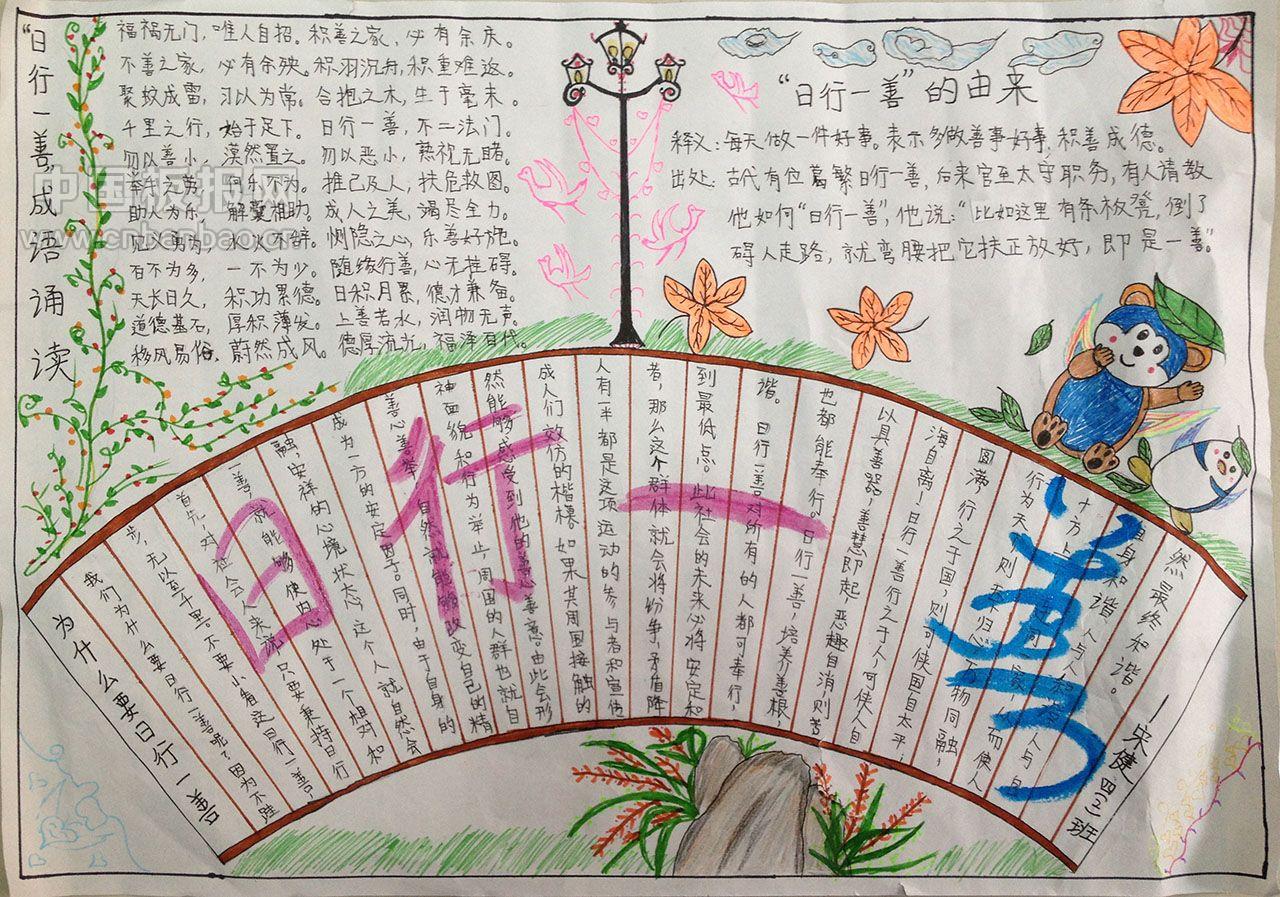 “日行一善”成语诵读
福祸无门，唯人自招。积善之家，必有余庆。
不善之家，必有余殃。积羽沉舟，积重难返。
聚蚊成雷，习以为常。合抱之木，生于毫末。
千里之行，始于足下。日行一善，不二法门。
勿以善小，漠然置之。勿以恶小，熟视无睹。
举手之劳，何乐不为。推己及人，扶危救困。
助人为乐，解囊相助。成人之美，竭尽全力。
见义勇为，水火不辞。恻隐之心，乐善好施。
百不为多，一不为少。随缘行善，心无挂碍。
天长日久，积功累德。日积月累，德才兼备。
道德基石，厚积薄发。上善若水，润物无声。
移风易俗，蔚然成风。德厚流光，福泽百代。
中国板报网
www.cnbanbao.cn
“日行一善”的由来
释义：每天做一件好事。表示多做善事好事，积善成德。
出处：古代有位葛繁日行一善，后来官至太守职务，有人请教
他如何“日行一善”，他说：“比如这里有条板凳，倒了
碍人走路，就弯腰把它扶正放好，即是一善。”
日行一善
为什么要日行一善
我们为什么要日行一善呢？因为不跬
步，无以至千里，不要小看这日行一善，
首先，对社会人来说，只要秉持日行
一善，就能够使内心处于一个相对和
融，安祥的心境状态，这个人就自然会
成为一方的安定因子。同时，由于自身的
善心善举，自然就能够改变自己的精
神面貌和行为举止，周围的人群也就自
然能够感受到他的善心善意。由此会形
成人们效仿的楷模，如果其周围接触的
人有一半都是这项运动的参与者和宣传
者，那么这个群体就会将纷争，矛盾降
到最低点。此社会的未来必将安定和
谐。日行一善对所有的人都可奉行，
也都能奉行。日行一善，培养善根，
以具善器，善慧即起，恶趣自消，则苦
海自离！日行一善行之于人，可使人自
圆满，行之于国，则可使国自太平；
行为天 则 归心 万物同融，而使人
自身和谐，人与人和 人与自
然最终和谐。
——宋健 四（3）班